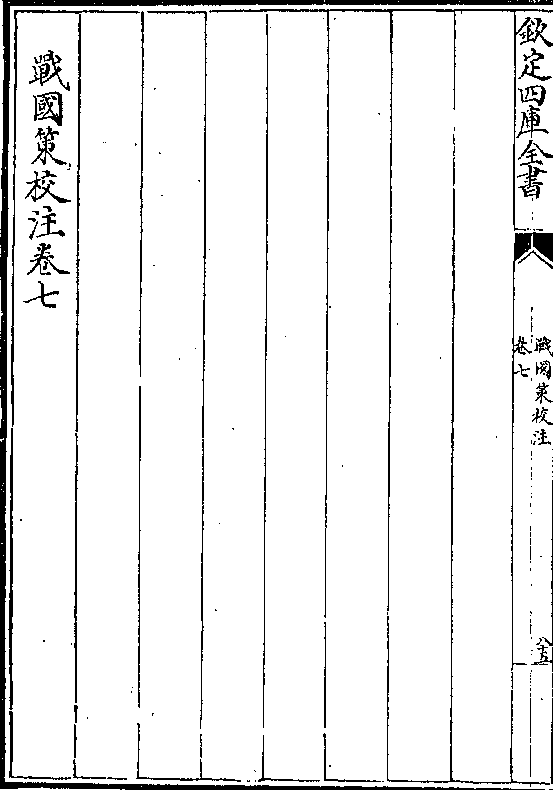 欽定四庫全書
戰國策校注
卷七
八十五
戰國策校注卷七